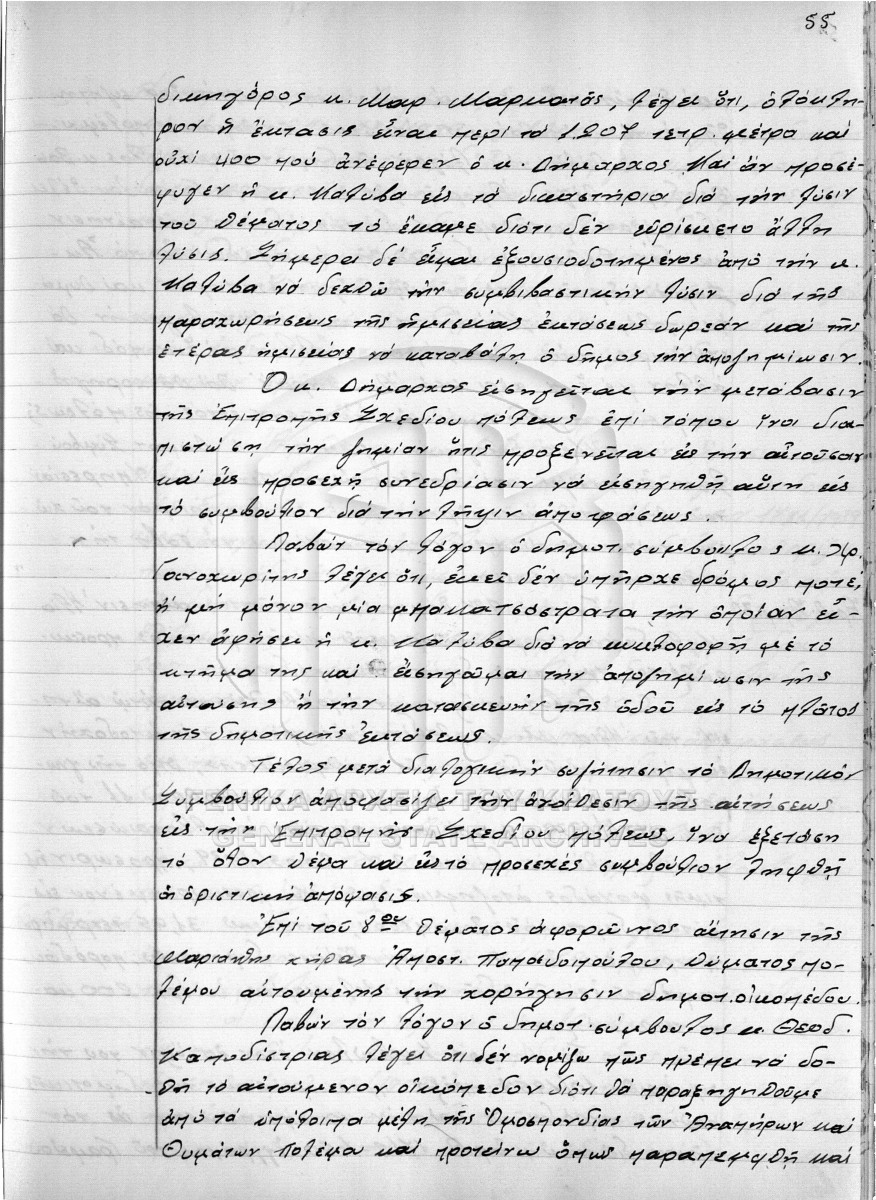 55
δικηγόρος κ. Μαρ. Μαρκατᾶς, λέγει ὅτι, ὁλόκλη-
ρον ἡ ἔκτασις εἶναι περί τά 1207 τετρ. μέτρα καί
οὐχί 400 πού ἀνέφερεν ὁ κ. Δήμαρχος. Καί ἄν προσέ-
φυγεν ἡ κ. Κατύβα εἰς τά δικαστήρια διά τήν λύσιν
τοῦ θέματος τό ἔκαμε διότι δέν εὑρίσκετο ἄλλη
λύσις. Σήμερα δέ εἶμαι ἐξουσιοδοτημένος ἀπό τήν κ.
Κατύβα νά δεχθῶ τήν συμβιβαστικήν λύσιν διά τῆς
παραχωρήσεως τῆς ἡμισείας ἐκτάσεως δωρεάν καί τῆς
ἑτέρας ἡμισείας νά καταβάλη ὁ δῆμος τήν ἀποζημίωσιν.
Ὁ κ. Δήμαρχος εἰσηγεῖται τήν μετάβασιν
τῆς Ἐπιτροπῆς Σχεδίου πόλεως ἐπί τόπου ἵνα δια-
πιστώση τήν ζημίαν ἥτις προξενεῖται εἰς τήν αἰτοῦσαν
καί εἰς προσεχῆ συνεδρίασιν νά εἰσηγηθῆ αὕτη εἰς
τό συμβούλιον διά τήν λῆψιν ἀποφάσεως.
Λαβών τόν λόγον ὁ δημοτ. σύμβουλος κ. Χρ.
λέγει ὅτι, ἐκεῖ δέν ὑπῆρχε δρόμος ποτέ,
ἤ μή μόνον μία μπακατσόστρατα τήν ὁποίαν εἶ-
χεν ἀφήσει ἡ κ. Κατύβα διά νά κυκλοφορῆ μέ τό
κτῆμα της καί εἰσηγοῦμαι τήν ἀποζημίωσιν τῆς
αἰτούσης ἤ τήν κατασκευήν τῆς ὁδοῦ εἰς τό πλάτος
τῆς δημοτικῆς ἐκτάσεως.
Τέλος μετά διαλογικήν συζήτησιν τό Δημοτικόν
Συμβούλιον ἀποφασίζει τήν ἀνάθεσιν τῆς αἰτήσεως
εἰς τήν Ἐπιτροπήν Σχεδίου πόλεως, ἵνα ἐξετάση
τό ὅλον θέμα καί εἰς τό προσεχές συμβούλιον ληφθῆ
ἡ ὁριστική ἀπόφασις.
Ἐπί τοῦ 8ου θέματος ἀφορῶντος αἴτησιν τῆς
Μαριάνθης χήρας Ἀποστ. Παπαδοπούλου, θύματος πο-
λέμου αἰτουμένης τήν χορήγησιν δημοτ. οἰκοπέδου.
Λαβών τόν λόγον ὁ δημοτ. σύμβουλος κ. Θεοδ.
Καποδίστριας λέγει ὅτι δέν νομίζω πῶς πρέπει νά δο-
θῆ τό αἰτούμενον οἰκόπεδον διότι θά παρεξηγηθοῦμε
ἀπό τά ὑπόλοιπα μέλη τῆς Ὁμοσπονδίας τῶν Ἀναπήρων καί
Θυμάτων Πολέμου καί προτείνω ὅπως παραπεμφθῆ καί
ΓΕΝΙΚΑ ΑΡΧΕΙΑ ΤΟΥ ΚΡΑΤΟΥΣ
GENERAL STATE ARCHIVES